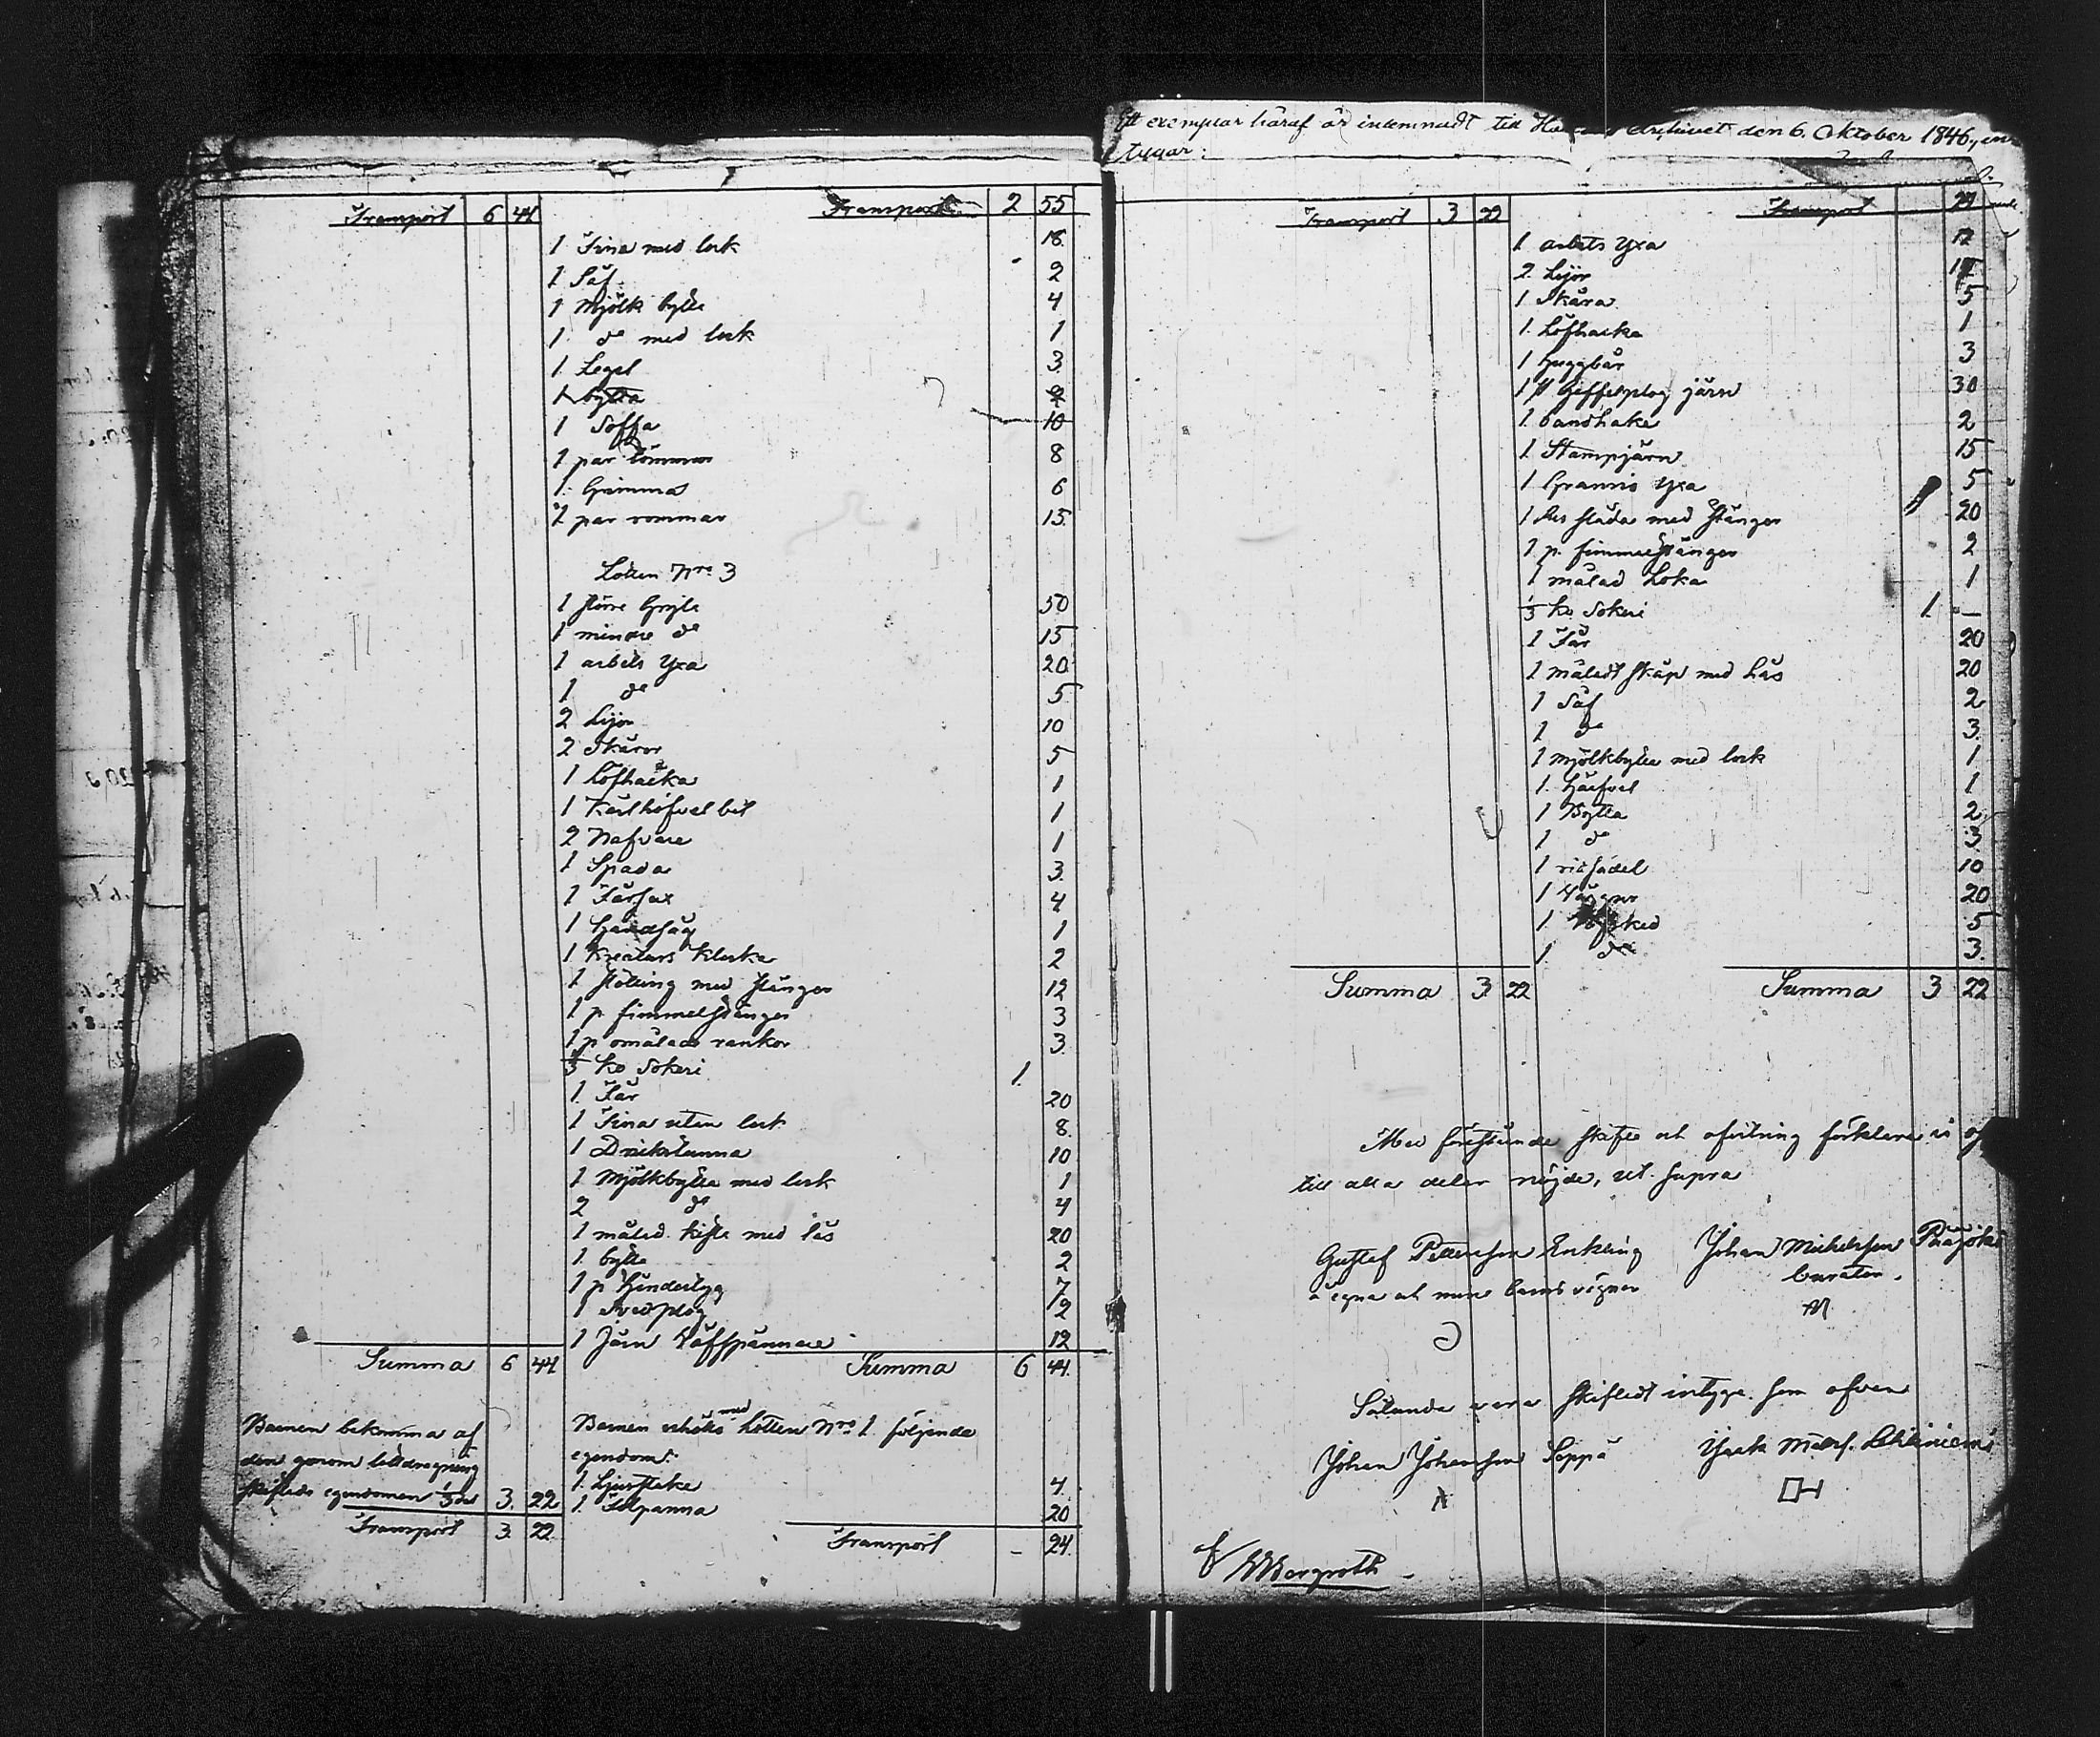 Transport 6 44
Transport 2 55
1 Tina med lock 18
1 Så 2
1 Mjölk bytta 4
1 do med lock 1
1 Legel 3
1 bytta 2
1 Soffa 10
1 par tömmar 8
1 Grimma 6
1 par rommar 15
Lotten Nro 3
1 större Gryta 50
1 mindre do 15
1 arbets Yxa 20
1 do 5
2 Lijor 10
2 Skäror 5
1 Löfhacka 1
1 bet 1
2 Nafvare 1
1 Spada 3
1 Fårsax 4
1 Handsåg 1
1 Kreaturs klocka 2
1 med stänger 12
1 p fimmelstänger 3
1 p omålade rankor 3
1/3 ko Sokeri 1
1 Får 20
1 Tina utan lock 8
1 Drickstunna 10
1 Mjölkbytta med lock 1
2 do 4
1 målad kista med lås 20
1 bytta 2
1 p 7
1 Svedplog 2
1 Järn 12
Summa 6 44
Summa 6 44
Barnen bekomma af
den genom lottdragning
skiftade egendomen 1/3 del 3 22
Transport 3 22
Barnen erhöllo med Lotten Nro 1 följande
egendom:
1 Ljusstake 4
1 20
Transport - 24
Ett exemplar häraf är inlemnadt till archivet den 6. Oktober 1846,
tygar:
Transport 3 22
Transport 24
1 arbets Yxa 12
2 Lijor
1 Skära 5
1 Löfhacka 1
1 3
1 p Gaffelplog järn 30
1 bandhake 2
1 Stampjärn 15
1 Yxa 5
1 släda med stänger 20
1 p. fimmelstänger 2
1 målad Loka 1
1/3 ko Sokeri 1 -
1 Får 20
1 måladt skåp med Lås 20
1 Så 2
1 do 3
1 Mjölkbytta med lock 1
1 1
1 Bytta 2
1 do 3
1 ridsadel 10
1 20
1 5
1 do 3
Summa 3 22
Summa 3 22
Med förestående skifte och afvittring förklara vi oss
till alla delar nöjde, ut supra
Gustaf Pettersson Enkling
å egna och mina barns vägnar
Johan Michelsson
Curator.
Sålunda vara skiftadt intyga. Som ofvan
Johan Johansson Seppä
Isaak Matts.
af
Bergroth